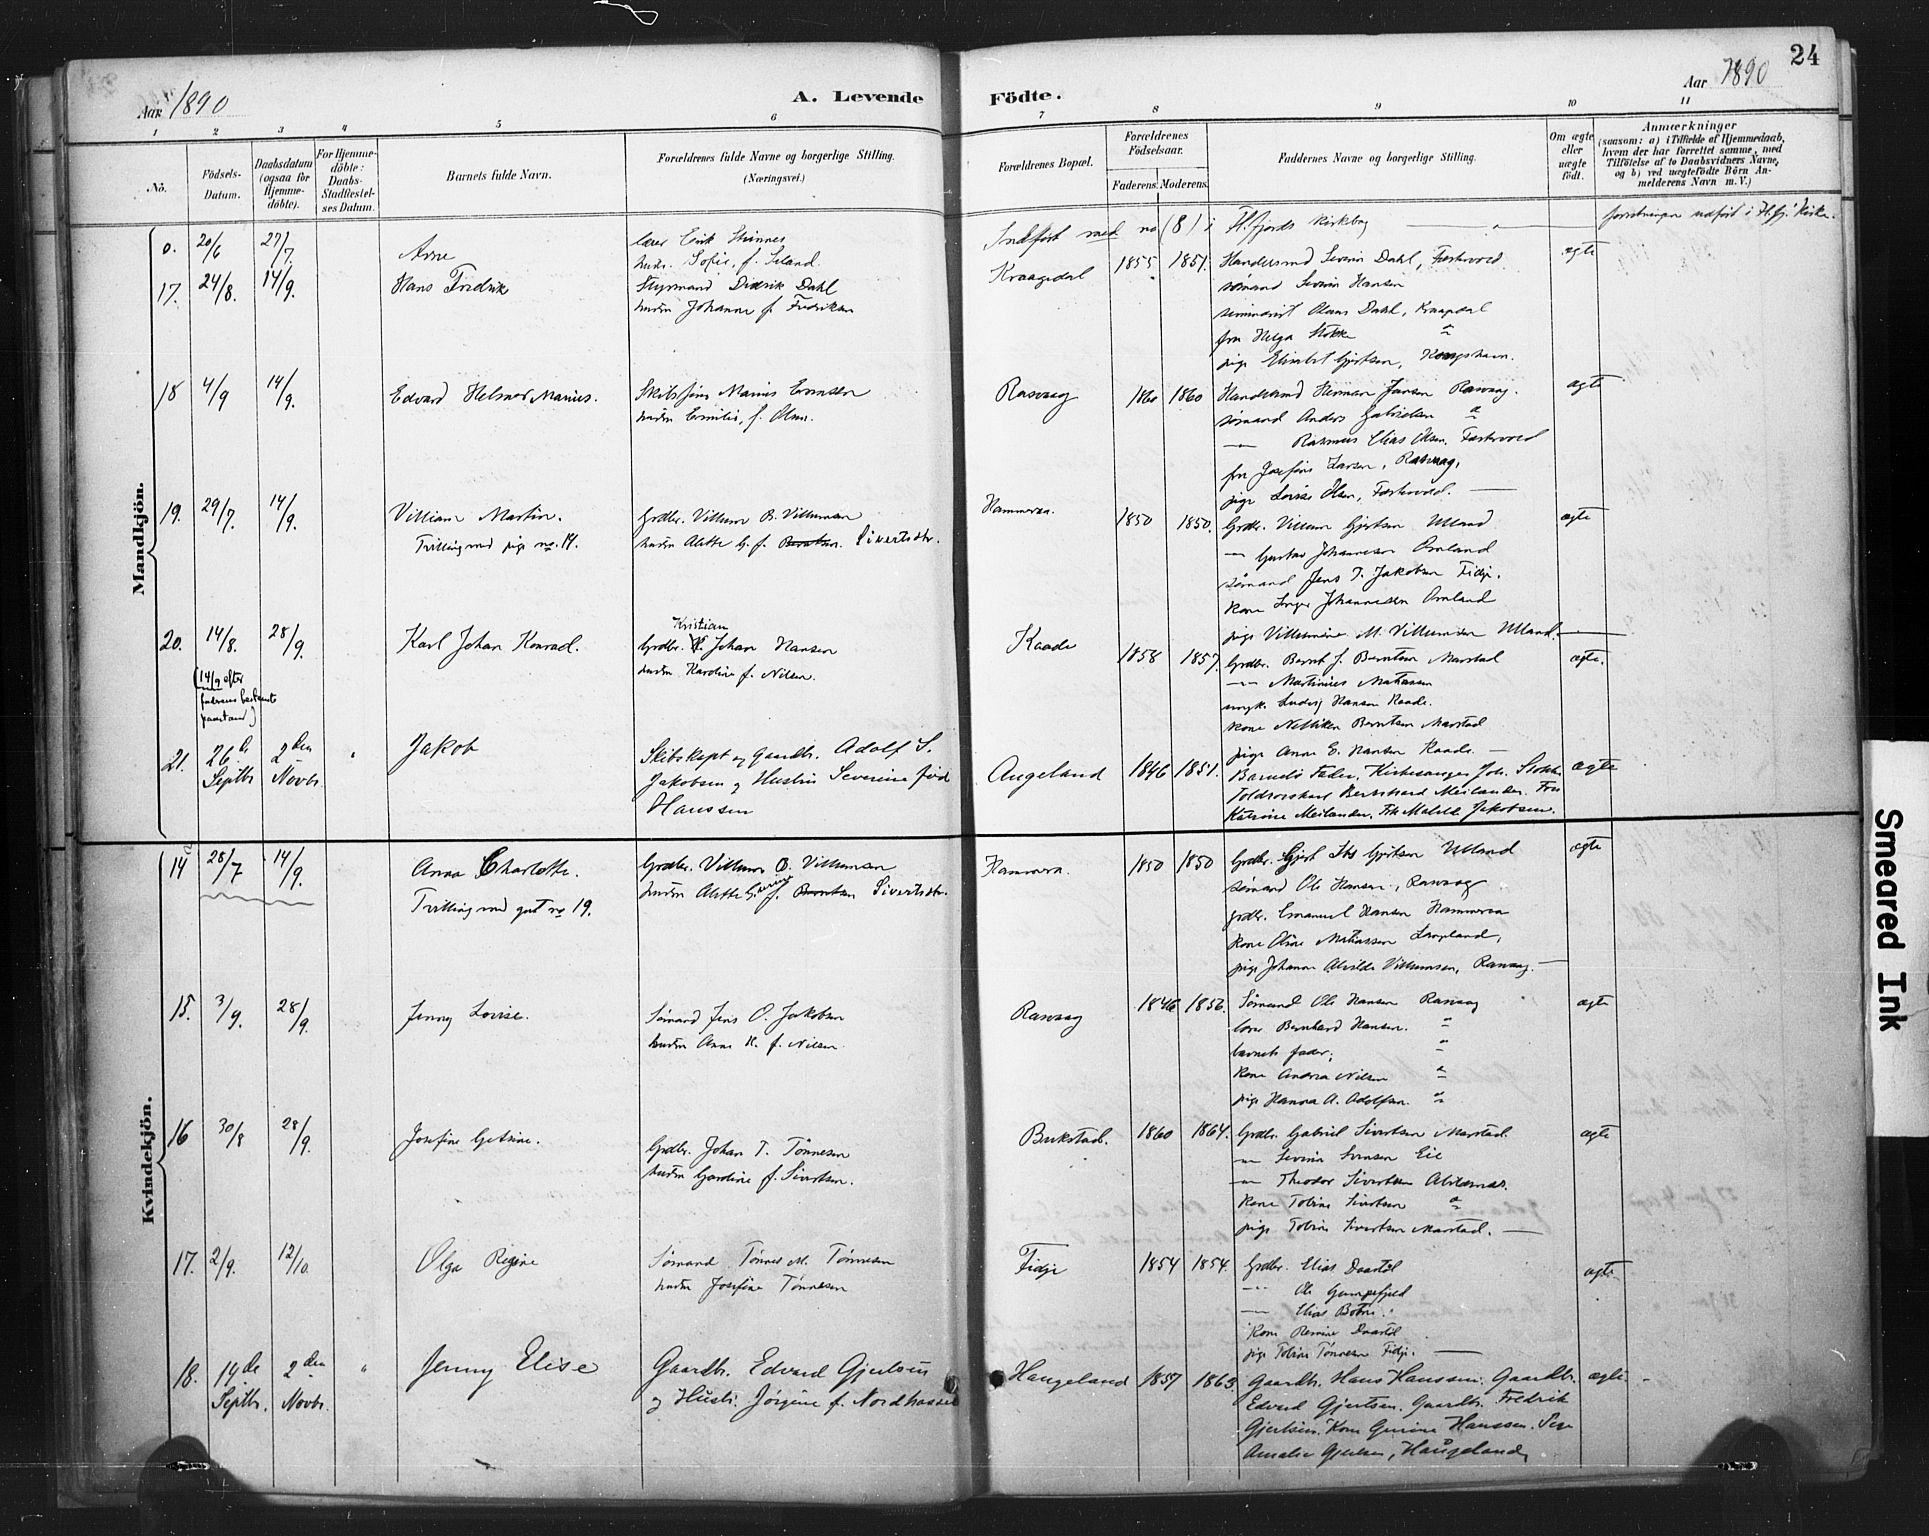 24
Aar 1890
A. Levende
Födte.
Aar 1890
1 2 3 4 5 6 7 8 9 10 11
No.
Födsels-
Datum.
Daabsdatum
(ogsaa för
Hjemme-
döbte).
For Hjemme-
döbte:
Daabs-
Stadfæstel-
ses Datum.
Barnets fulde Navn.
Forældrenes fulde Navne og borgerlige Stilling.
(Næringsvei.)
Forældrenes Bopæl.
Forældrenes
Födselsaar.
Faderens. Moderens.
Faddernes Navne og borgerlige Stilling.
Om ægte
eller
uægte
födt.
Anmærkninger
(saasom: a) i Tilfælde af Hjemmedaab,
hvem der har forrettet samme, med
Tilföielse af to Daabsvidners Navne,
og b) ved uægtefödte Börn An-
melderens Navn m. V.)
Mandkjön.
0. 20/6 27/7 Arne
lærer Eirik Skinnes
hustr. Sofie, f. Seland
Indført med no (8) i H.fjords kirkebog
17. 24/8. 14/9. Hans Fridrik
Styrmand Didrik Dahl
hustru Johanne f. Fredriksen
Kraagedal 1855 1851.
Severin Dahl,
sømand Severin Hansen
Olaus Dahl, Kraagedal
fru Helga Stokke "
pige Gjertsen,
ægte
18 4/9 14/9. Edvard Helmer Marius.
Marius
hustru Emilie, f. Olsen.
Rasvaag 1860 1860
Herman Jansen Rasvaag.
sømand Anders Gabrielsen "
— Rasmus Elias Olsen.
fru Josefine Larsen, Rasvaag,
pige Lovise Olsen,
ægte
19. 29/7. 14/9. Villiam Martin.
Tvilling med pige no. 14.
Grdbr. Villum B. Villumsen
hustru Alette G. f. Berntsen. Sivertsdtr.
Hammeraa. 1850 1850.
Grdbr. Villum Gjertsen Ulland
— Gustav Johannesen Omland
sømand Jens T. Jakobsen Fidje.
kone Inger Johannesen Omland
pige Villumine M. Villumsen Ulland.
ægte
20. 14/8. 28/9. Karl Johan Konrad.
(14/9 efter
faderens bestemte
paastand)
Kristian
Grdbr. K. Johan Hansen
hustru Karoline f. Nilsen.
Kaade 1858 1857.
Grdbr. Bernt J. Berntsen Marstad
— Martinius Mathiasen
ungk. Ludvig Hansen Kaade.
kone Berntsen Marstad
pige Anne E. Hansen Kaade.
ægte.
21. 26de Septbr. 2den Novbr. " Jakob
Skibskapt og gaardbr. Adolf S.
Jakobsen og Hustru Severine född
Hanssen
Augeland 1846 1851.
Barnets Fader, Kirkesanger Joh. Stokke
Toldroerskarl Bernhard Meilænder. Fru
Katrine Meilænder, Frk Malide Jakobsen.
ægte
Kvindekjön.
14 28/7 14/9. Anna Charlotte.
Tvilling med gut no 19.
Grdbr. Villum B. Villumsen
hustru Alette G. f. Berntsen Sivertsdtr.
Hammeraa. 1850 1850
Grdbr. Gjert Gjertsen Ulland
sømand Ole Hansen, Rasvaag
grdbr. Emanuel Hansen Hammeraa
kone Oline Mathiassen
pige Johanne Alvilde Villumsen, Rasvaag.
ægte
15. 3/9. 28/9. Jenny Lovise.
Sømand Jens O. Jakobsen
hustru Anne K. f. Nilsen.
Rasvaag 1846 1856.
Sømand Ole Hansen Rasvaag
lærer Bernhard Hansen. "
barnets fader; "
kone Andrea Nilsen "
pige Hanna A. Adolfsen. "
ægte
16 30/8 28/9. Josefine Getrine.
Grdbr. Johan T. Tønnesen
hustru Gardine f. Sivertsen.
Bukstad. 1860 1864.
Grdbr. Gabriel Sivertsen Marstad.
— Severin Svensen Eie
— Theodor Sivertsen Abelsnæs.
Kone Tobine Sivertsen "
pige Tobine Sivertsen Marstad.
ægte
17. 2/9. 12/10. Olga Regine
Sømand Tønnes M. Tønnesen
hustru Josefine Tønnesen
Fidje 1854 1854.
Grdbr. Elias Daastøl
— Ole
— Elias Botne.
Kone Daastøl
pige Tobine Tønnesen Fidje.
ægte
18. 19de Septbr. 2den Novbr. " Jenny Elise
Gaardbr. Edvard Gjertsen
og Hustr. Jørgine f. Nordhassel
Haugeland 1857 1863.
Gaardbr. Hans Hanssen. Gaardbr.
Edvard Gjertsen. Gaardbr. Fredrik
Gjertsen. Kone Gurine Hanssen. Pige
Amalie Gjertsen, Haugeland
ægte
Smeared Ink